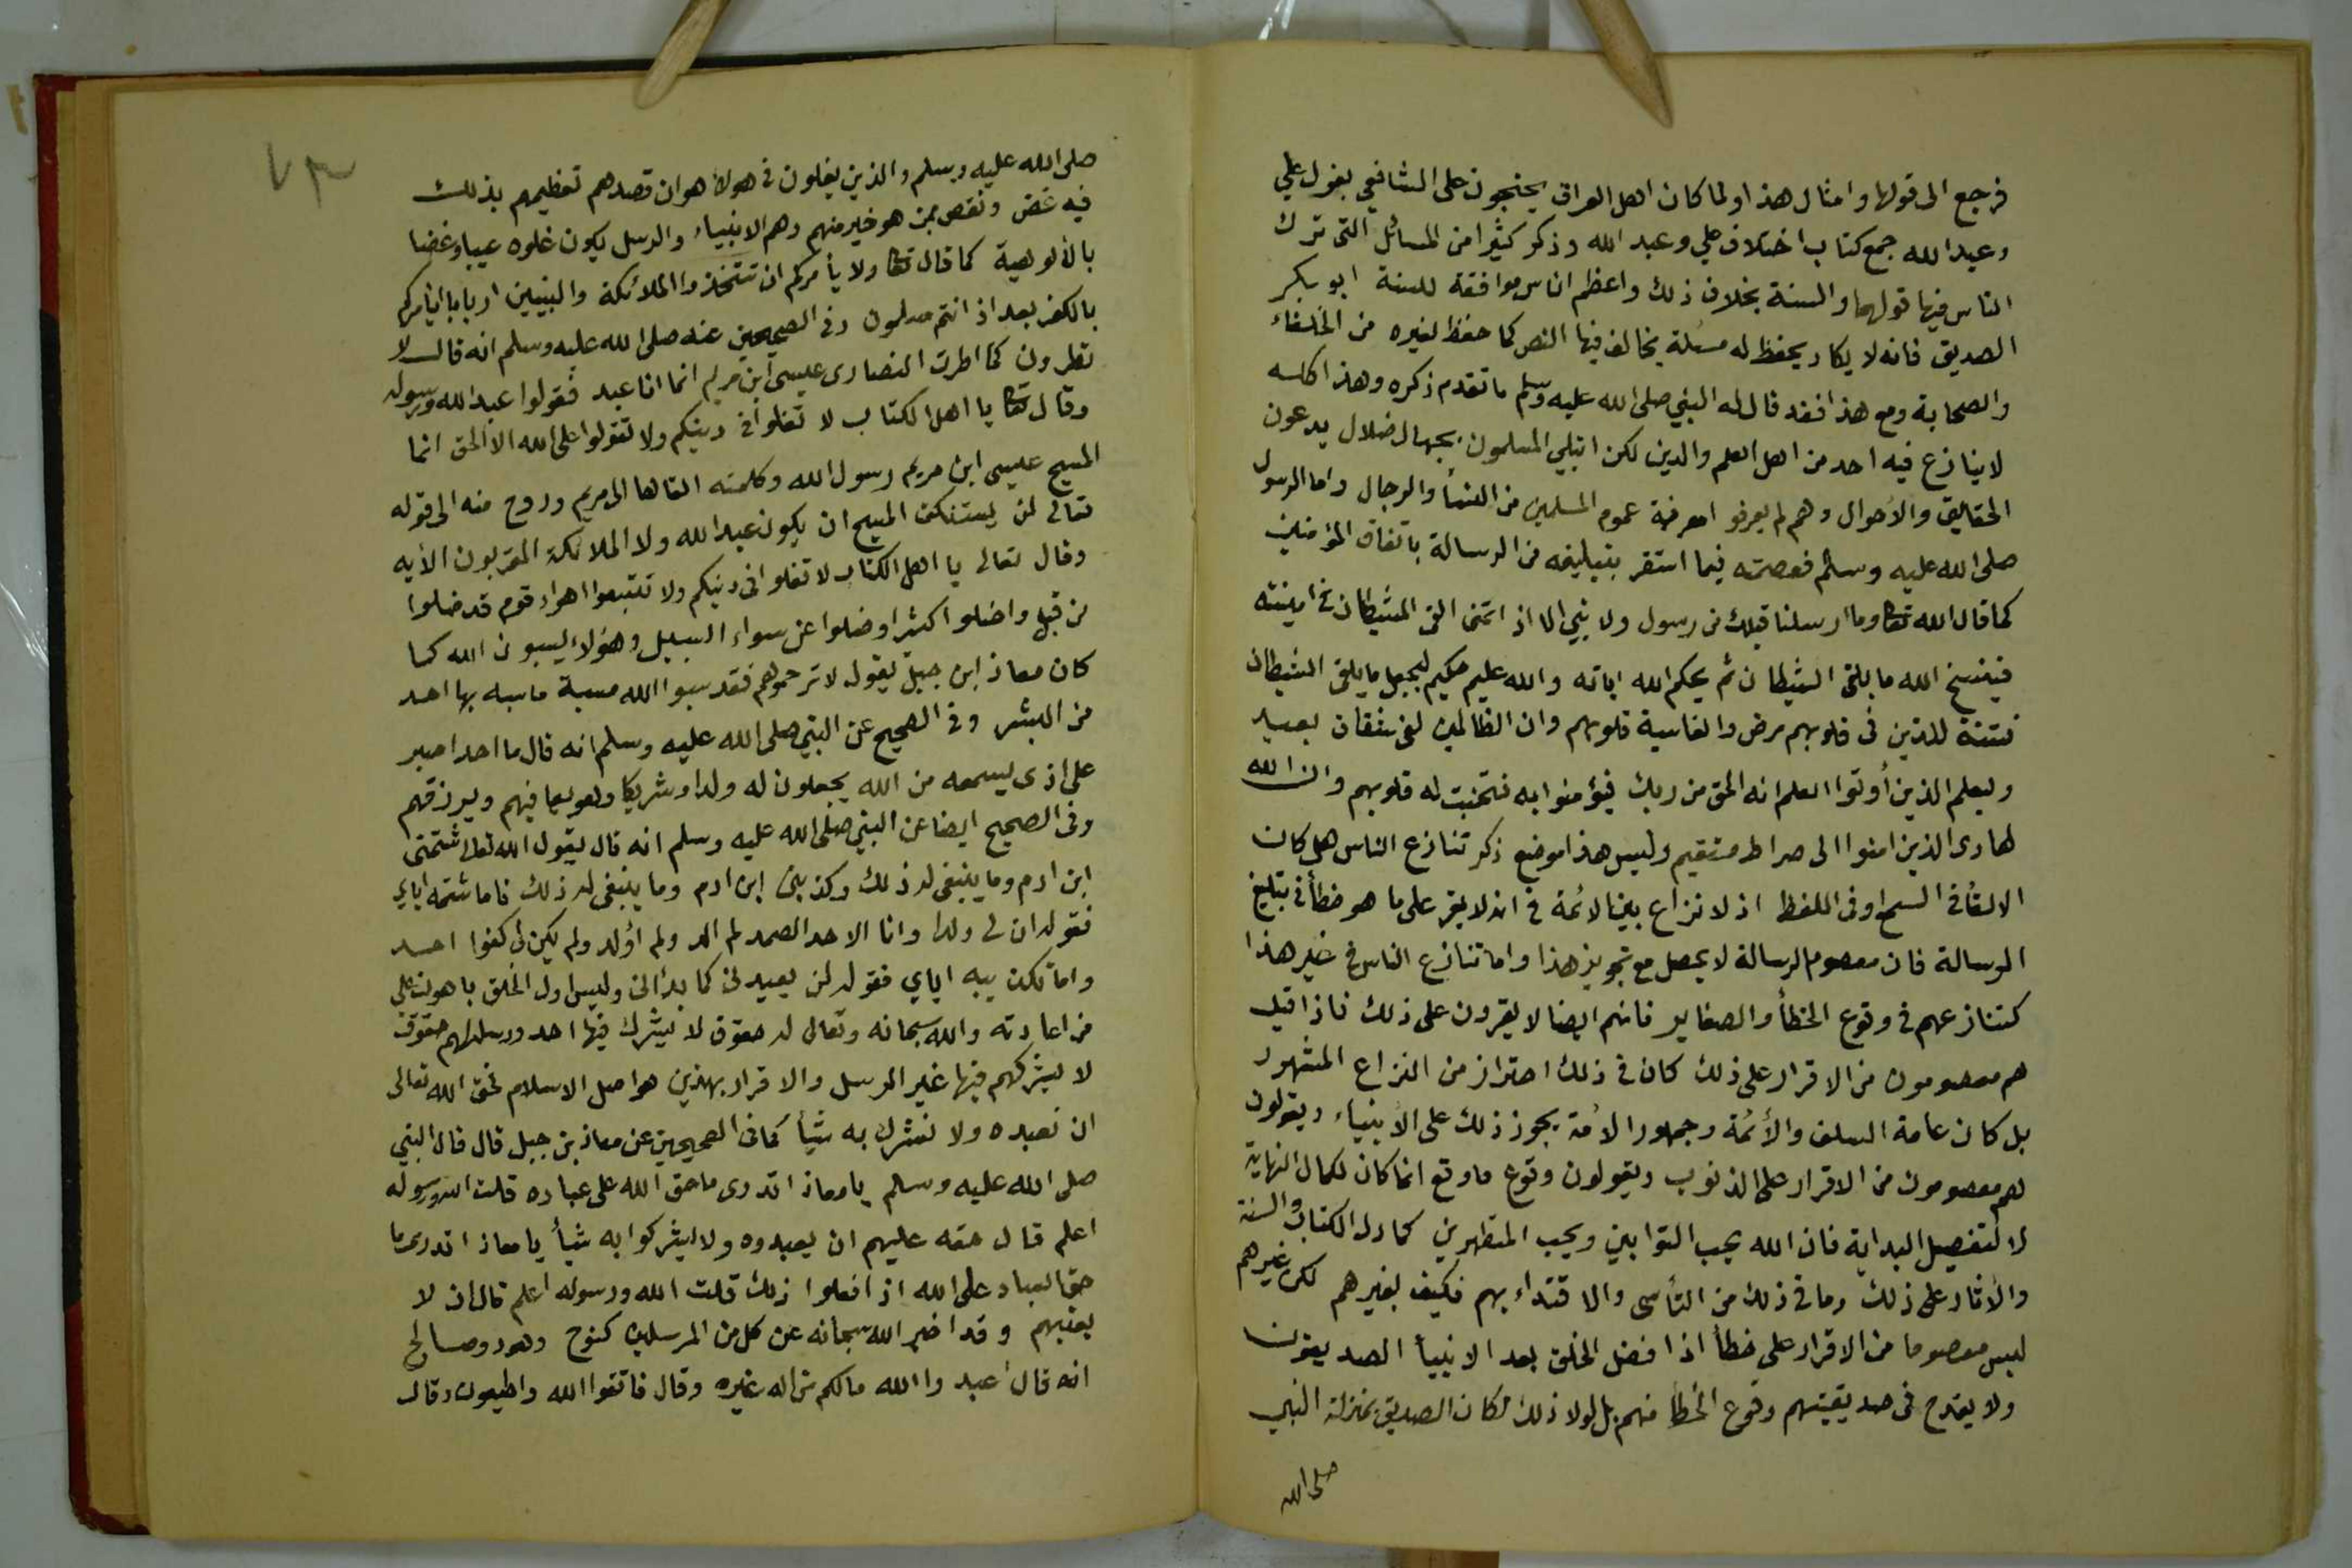 فرجع الى قولها وامثال هذا ولما كان اهل العراق يحتجون على الشافعي بقول علي
وعبد الله جمع كتاب اختلاف علي وعبد الله وذكر كثيرا من المسائل التى ترك
الناس فيها قولهما والسنة بخلاف ذلك واعظم الناس موافقة للسنة ابو بكر
الصديق فانه لا يكاد يحفظ له مسئلة يخالف فيها النص كما حفظ لغيره من الخلفاء
والصحابة ومع هذا فقد قال له النبي صلى الله عليه وسلم ما تقدم ذكره وهذا كله
لا ينازع فيه احد من اهل العلم والدين لكن ابتلي المسلمون بجهال ضلال يدعون
الحقايق والأحوال وهم لم يعرفو امعرفة عموم المسلمين من النسأ والرجال واما الرسول
صلى الله عليه وسلم فعصمته فيما استقر بتبليغه من الرسالة باتفاق المؤمنين
كما قال الله تعا وما ارسلنا قبلك من رسول ولا نبي الا اذ اتمنى القى الشيطان في امنيته
فينسخ الله ما يلقى الشيطان ثم يحكم الله اياته والله عليم حكيم ليجعل ما يلقى الشيطان
فتنة للذين في قلوبهم مرض والقاسية قلوبهم وان الظالمين لفى شقاق بعيد
وليعلم الذين أوتوا العلم انه الحق من ربك فيؤمنوا به فتخبت له قلوبهم وان الله
لهادى الذين امنوا الى صراط مستقيم وليس هذا موضع ذكر تنازع الناس هل كان
الالقأ في السمع او فى اللفظ اذ لا نزاع بين الائمة في انه لا يقر على ما هو خطأ في تبليغ
الرسالة فان معصوم الرسالة لا يحصل مع تجويز هذا واما تنازع الناس في غير هذا
كتنازعهم في وقوع الخطأ والصغاير فانهم ايضا لا يقرون على ذلك فاذا قيل
هم معصومون من الاقرار على ذلك كان في ذلك احتراز من النزاع المشهور
بل كان عامة السلف والأئمة وجمهور الأمة يجوز ذلك على الأنبياء ويقولون
هم معصومون من الاقرار على الذنوب ويقولون وقوع ما وقع انما كان لكمال النهاية
لا لتفصيل البداية فان الله يحب التوابين ويحب المتطهرين كما دل الكتاب والسنة
والأثار على ذلك وما في ذلك من التأسى والاقتداء بهم فكيف بغيرهم لكن غيرهم
ليس معصوما من الاقرار على خطأ اذا فضل الخلق بعد الانبيأ الصديقون
ولا يقدح فى صديقيتهم وقوع الخطأ منهم بل لولا ذلك لكان الصديق بمنزلة النبي
صلى الله
٧٣
صلى الله عليه وسلم والذين يغلون في هولاء هو ان قصدهم تعظيمهم بذلك
فيه غض ونقص بمن هو خير منهم وهم الانبياء والرسل يكون غلوه عيبا وغضا
بالألوهية كما قال تعا ولا يأمركم ان تتخذوا الملائكة والنبيين اربابا ايأمركم
بالكفر بعد اذ انتم مسلمون وفى الصحيحين عنه صلى الله عليه وسلم انه قال لا
تطرون كما اطرت النصارى عيسى ابن مريم انما انا عبد فقولوا عبد الله ورسوله
وقال تعا يا اهل الكتاب لا تغلوا فى دينكم ولا تقولوا على الله الا الحق انما
المسيح عيسى ابن مريم رسول الله وكلمته القاها الى مريم وروح منه الى قوله
تعالى لن يستنكف المسيح ان يكون عبد الله ولا الملائكة المقربون الأيه
وقال تعالى يا اهل الكتاب لا تغلوا فى دينكم ولا تتبعوا اهواء قوم قد ضلوا
من قبل واضلوا كثيرا وضلوا عن سواء السبيل وهؤلاء يسبون الله كما
كان معاذ ابن جبل يقول لا ترحموهم فقد سبوا الله مسبة ما سبه بها احد
من البشر وفى الصحيح عن النبي صلى الله عليه وسلم انه قال ما احدا صبر
على اذى يسمعه من الله يجعلون له ولدا وشريكا وهو يعافيهم ويرزقهم
وفى الصحيح ايضا عن النبي صلى الله عليه وسلم انه قال يقول الله تعالى شتمنى
ابن ادم وما ينبغى له ذلك وكذبنى ابن ادم وما ينبغى له ذلك فاما شتمه اياي
فقوله ان لى ولدا وانا الاحد الصمد لم الد ولم أولد ولم يكن لى كفوا احد
واما تكذيبه اياي فقوله لن يعيدنى كما بدأنى وليس اول الخلق باهون علي
من اعادته والله سبحانه وتعالى له حقوق لا يشرك فيها احد ورسله لهم حقوق
لا يشركهم فيها غير الرسل والاقرار بهذين هو اصل الاسلام فحق الله تعالى
ان نعبده ولا نشرك به شيأ كما فى الصحيحين عن معاذ بن جبل قال قال النبي
صلى الله عليه وسلم يا معاذ اتدرى ما حق الله على عباده قلت الله ورسوله
اعلم قال حقه عليهم ان يعبدوه ولا يشركوا به شيأ يا معاذ اتدرى ما
حق العباد على الله اذ افعلوا ذلك قلت الله ورسوله اعلم قال ان لا
يعذبهم وقد اخبر الله سبحانه عن كل من المرسلين كنوح وهود وصالح
انه قال أعبدوا الله مالكم من اله غيره وقال فاتقوا الله واطيعون وقال